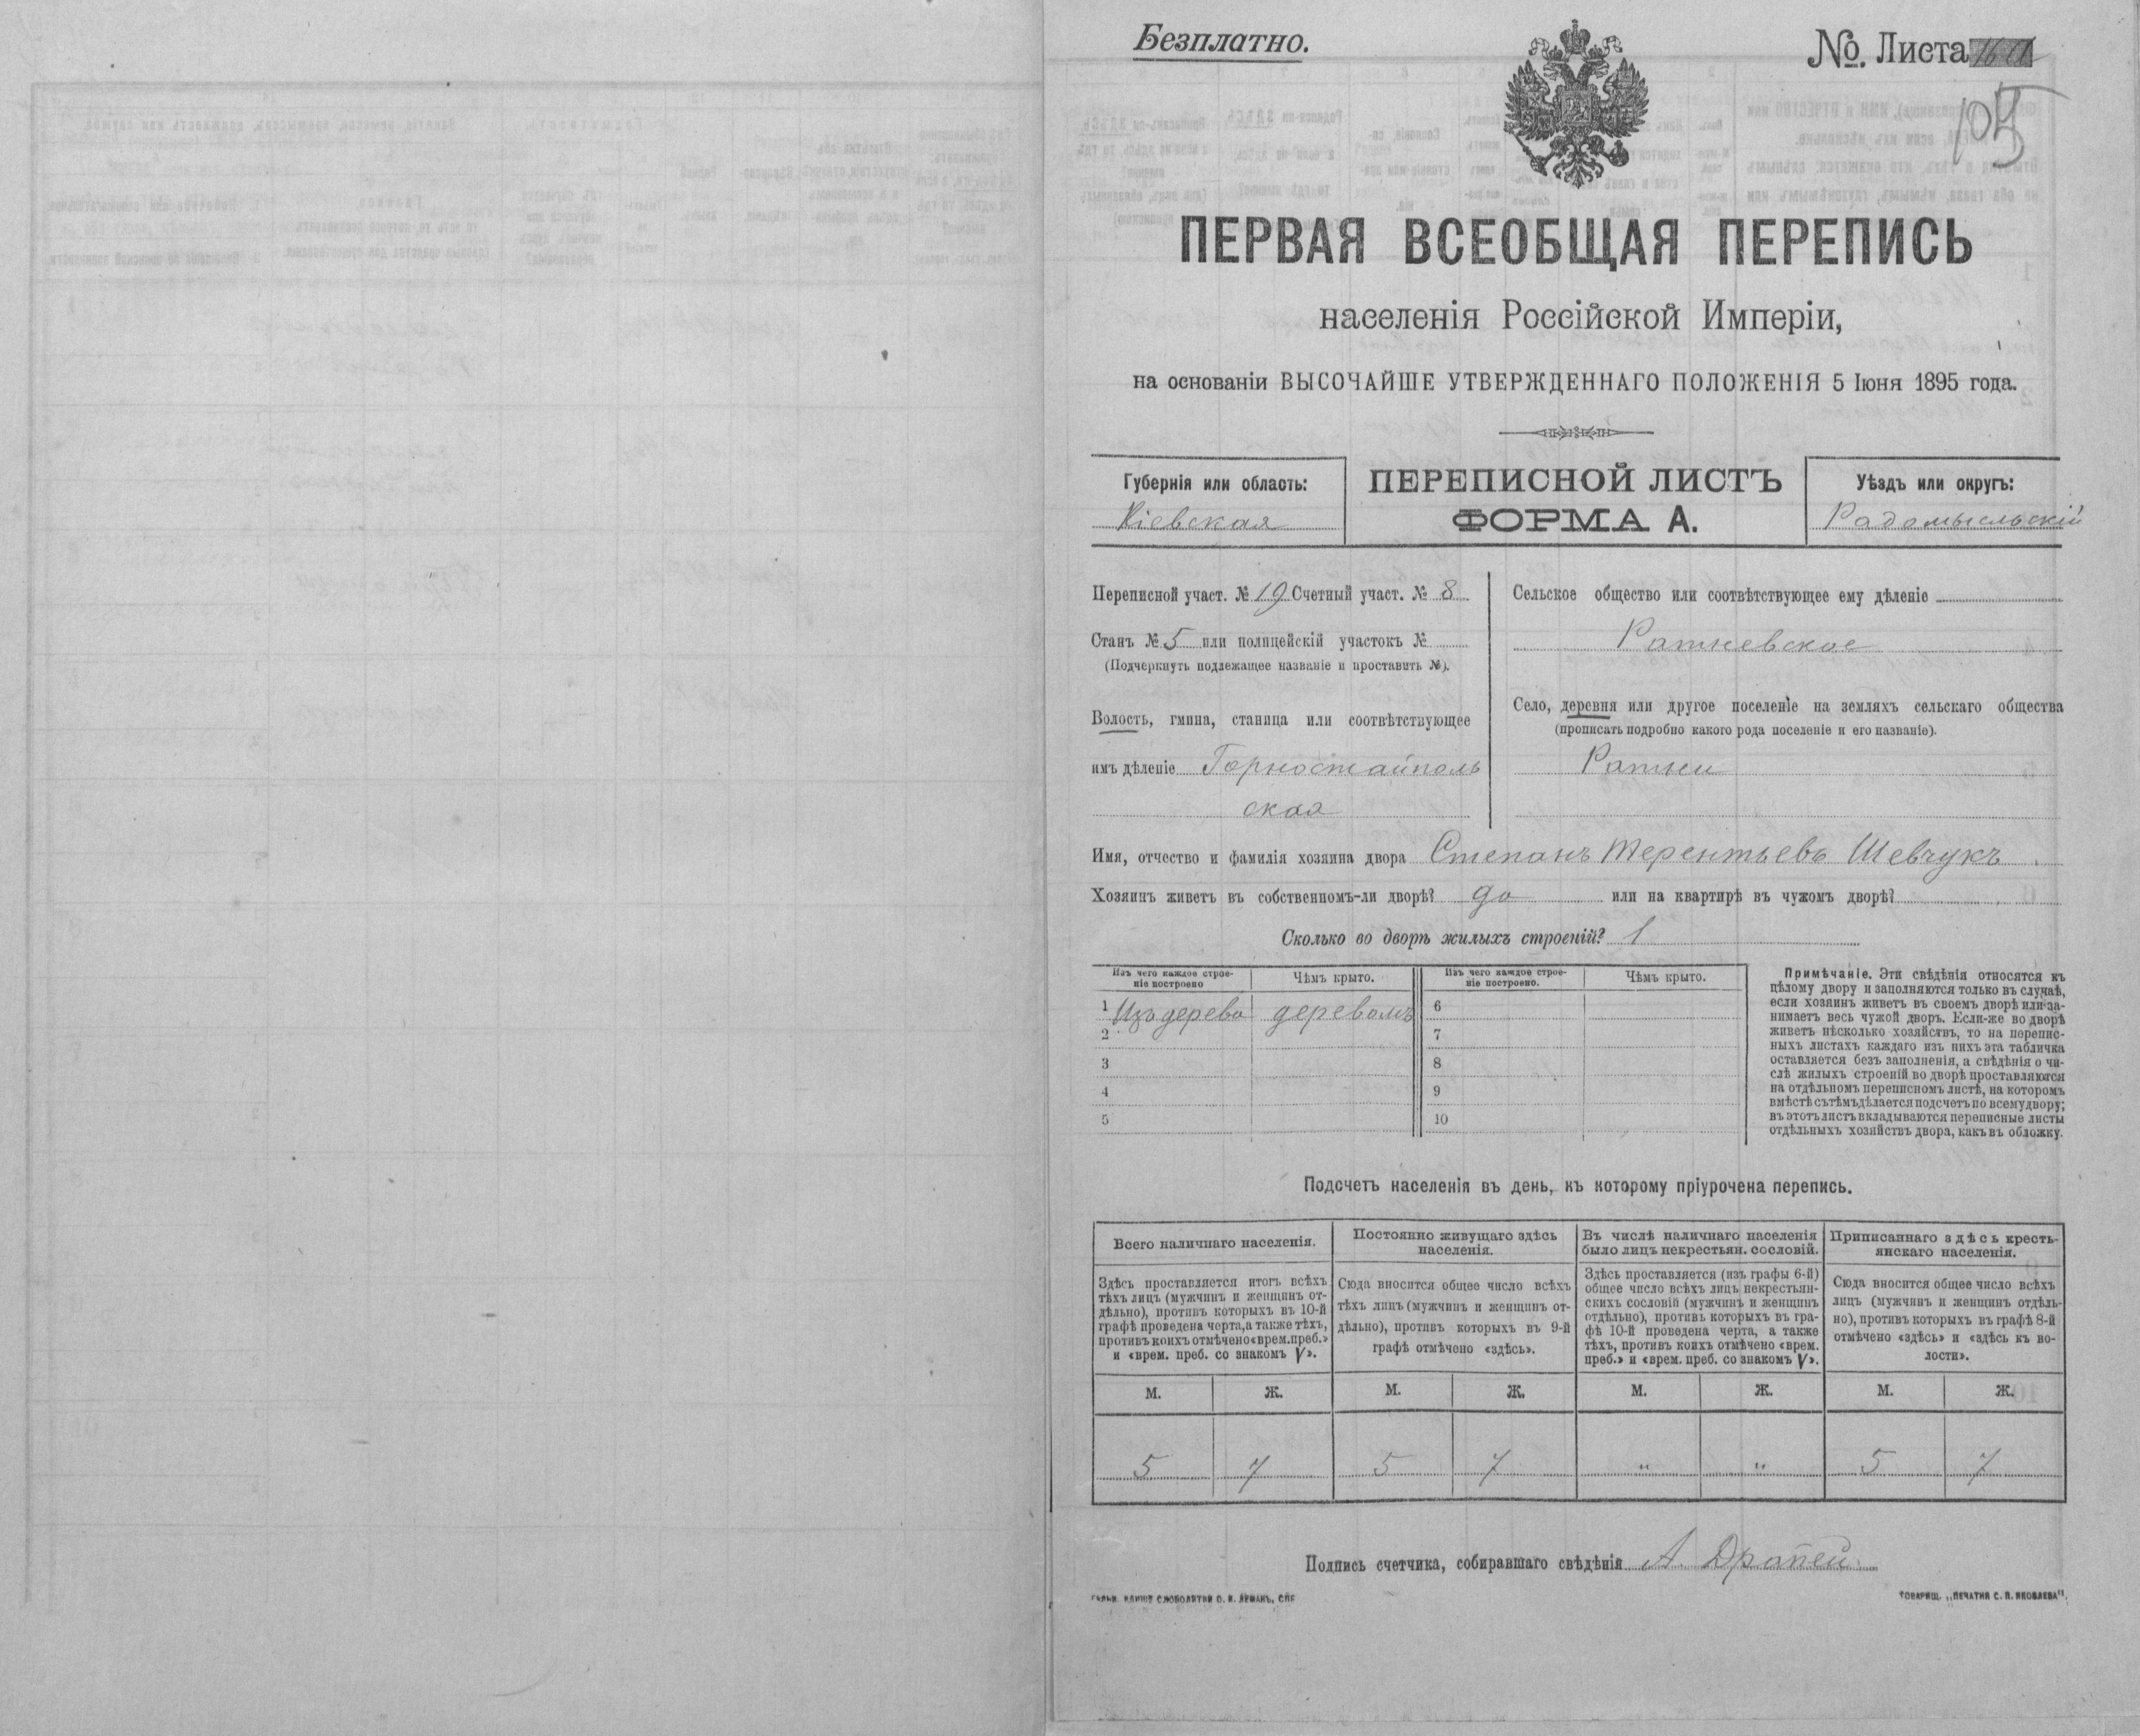 Безплатно.
№ Листа
105
ПЕРВАЯ ВСЕОБЩАЯ ПЕРЕПИСЬ
населенія Россійской Имперіи,
на основаніи ВЫСОЧАЙШЕ УТВЕРЖДЕННАГО ПОЛОЖЕНІЯ 5 Іюня 1895 года.
Губернія или область:
Кіевская
ПЕРЕПИСНОЙ ЛИСТЪ
ФОРМА А.
Уѣздъ или округъ:
Радомысльскій
Переписной участ. № 19 Счетный участ. № 8
Станъ № 5 или полицейскій участокъ №
(Подчеркнуть подлежащее названіе и проставить №).
Волость, гмина, станица или соотвѣтствующее
имъ дѣленіе Горностайполь
ская
Сельское общество или соотвѣтствующее ему дѣленіе
Ратневское
Село, деревня или другое поселеніе на земляхъ сельскаго общества
(прописать подробно какого рода поселеніе и его названіе).
Ратни
Имя, отчество и фамилія хозяина двора Степанъ Терентьевъ Шевчукъ
Хозяинъ живетъ въ собственномъ-ли дворѣ? да или на квартирѣ въ чужомъ дворѣ?
Сколько во дворѣ жилыхъ строеній? 1
Изъ чего каждое строе-
ніе построено
Чѣмъ крыто.
Изъ чего каждое строе-
ніе построено.
Чѣмъ крыто.
1 Изъ дерева деревомъ 6
2 7
3 8
4 9
5 10
Примѣчаніе. Эти свѣдѣнія относятся къ
цѣлому двору и заполняются только въ случаѣ,
если хозяинъ живетъ въ своемъ дворѣ или за-
нимаетъ весь чужой дворъ. Если-же во дворѣ
живетъ нѣсколько хозяйствъ, то на перепис-
ныхъ листахъ каждаго изъ нихъ эта табличка
оставляется безъ заполненія, а свѣдѣнія о чи-
слѣ жилыхъ строеній во дворѣ проставляются
на отдѣльномъ переписномъ листѣ, на которомъ
вмѣстѣ съ тѣмъ дѣлается подсчетъ по всему двору;
въ этотъ листъ вкладываются переписные листы
отдѣльныхъ хозяйствъ двора, какъ въ обложку.
Подсчетъ населенія въ день, къ которому пріурочена перепись.
Всего наличнаго населенія.
Здѣсь проставляется итогъ всѣхъ
тѣхъ лицъ (мужчинъ и женщинъ от-
дѣльно), противъ которыхъ въ 10-й
графѣ проведена черта, а также тѣхъ,
противъ коихъ отмѣчено «врем. преб.»
и «врем. преб. со знакомъ V».
Постоянно живущаго здѣсь
населенія.
Сюда вносится общее число всѣхъ
тѣхъ лицъ (мужчинъ и женщинъ от-
дѣльно), противъ которыхъ въ 9-й
графѣ отмѣчено «здѣсь».
Въ числѣ наличнаго населенія
было лицъ некрестьян. сословій.
Здѣсь проставляется (изъ графы 6-й)
общее число всѣхъ лицъ некрестьян-
скихъ сословій (мужчинъ и женщинъ
отдѣльно), противъ которыхъ въ гра-
фѣ 10-й проведена черта, а также
тѣхъ, противъ коихъ отмѣчено «врем.
преб.» и «врем. преб. со знакомъ V».
Приписаннаго здѣсь кресть-
янскаго населенія.
Сюда вносится общее число всѣхъ
лицъ (мужчинъ и женщинъ отдѣль-
но), противъ которыхъ въ графѣ 8-й
отмѣчено «здѣсь» и «здѣсь къ во-
лости».
М. Ж. М. Ж. М. Ж. М. Ж.
5 7 5 7 " " 5 7
Подпись счетчика, собиравшаго свѣдѣнія А. Драпей
ТОВАРИЩ. „ПЕЧАТНЯ С. П. ЯКОВЛЕВА".